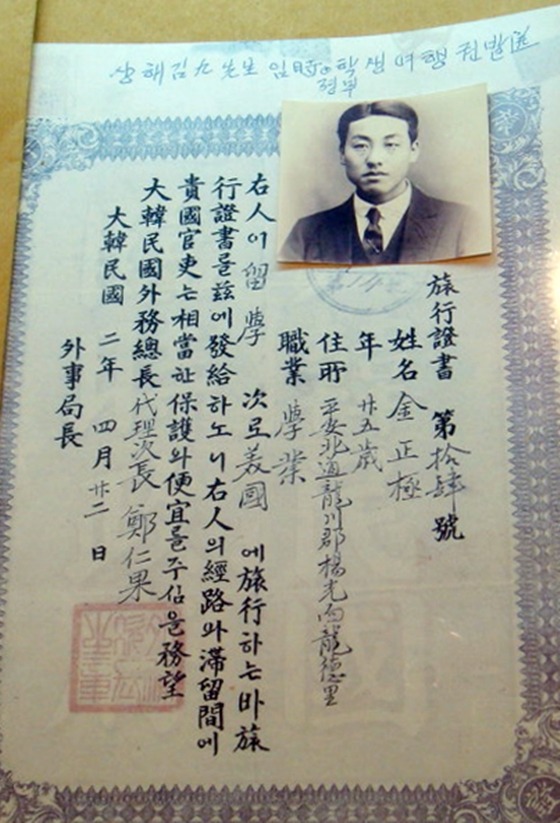 상해김九先生 임時 학생여행권발
정부
旅行證書 第拾肆號
姓名 金正極
年 廿五歲
住所 平安北道龍川郡楊光面龍德里
職業 學業
右人이 留學 次로 美國 에旅行하는바旅
行證書를玆에發給하노니右人의經路와滯留間에
貴國官吏는相當한保護와便宜를주심을務望
大韓民國外務總長代理次長 鄭仁果
大韓民國 二年 四月 廿二日
外事局長